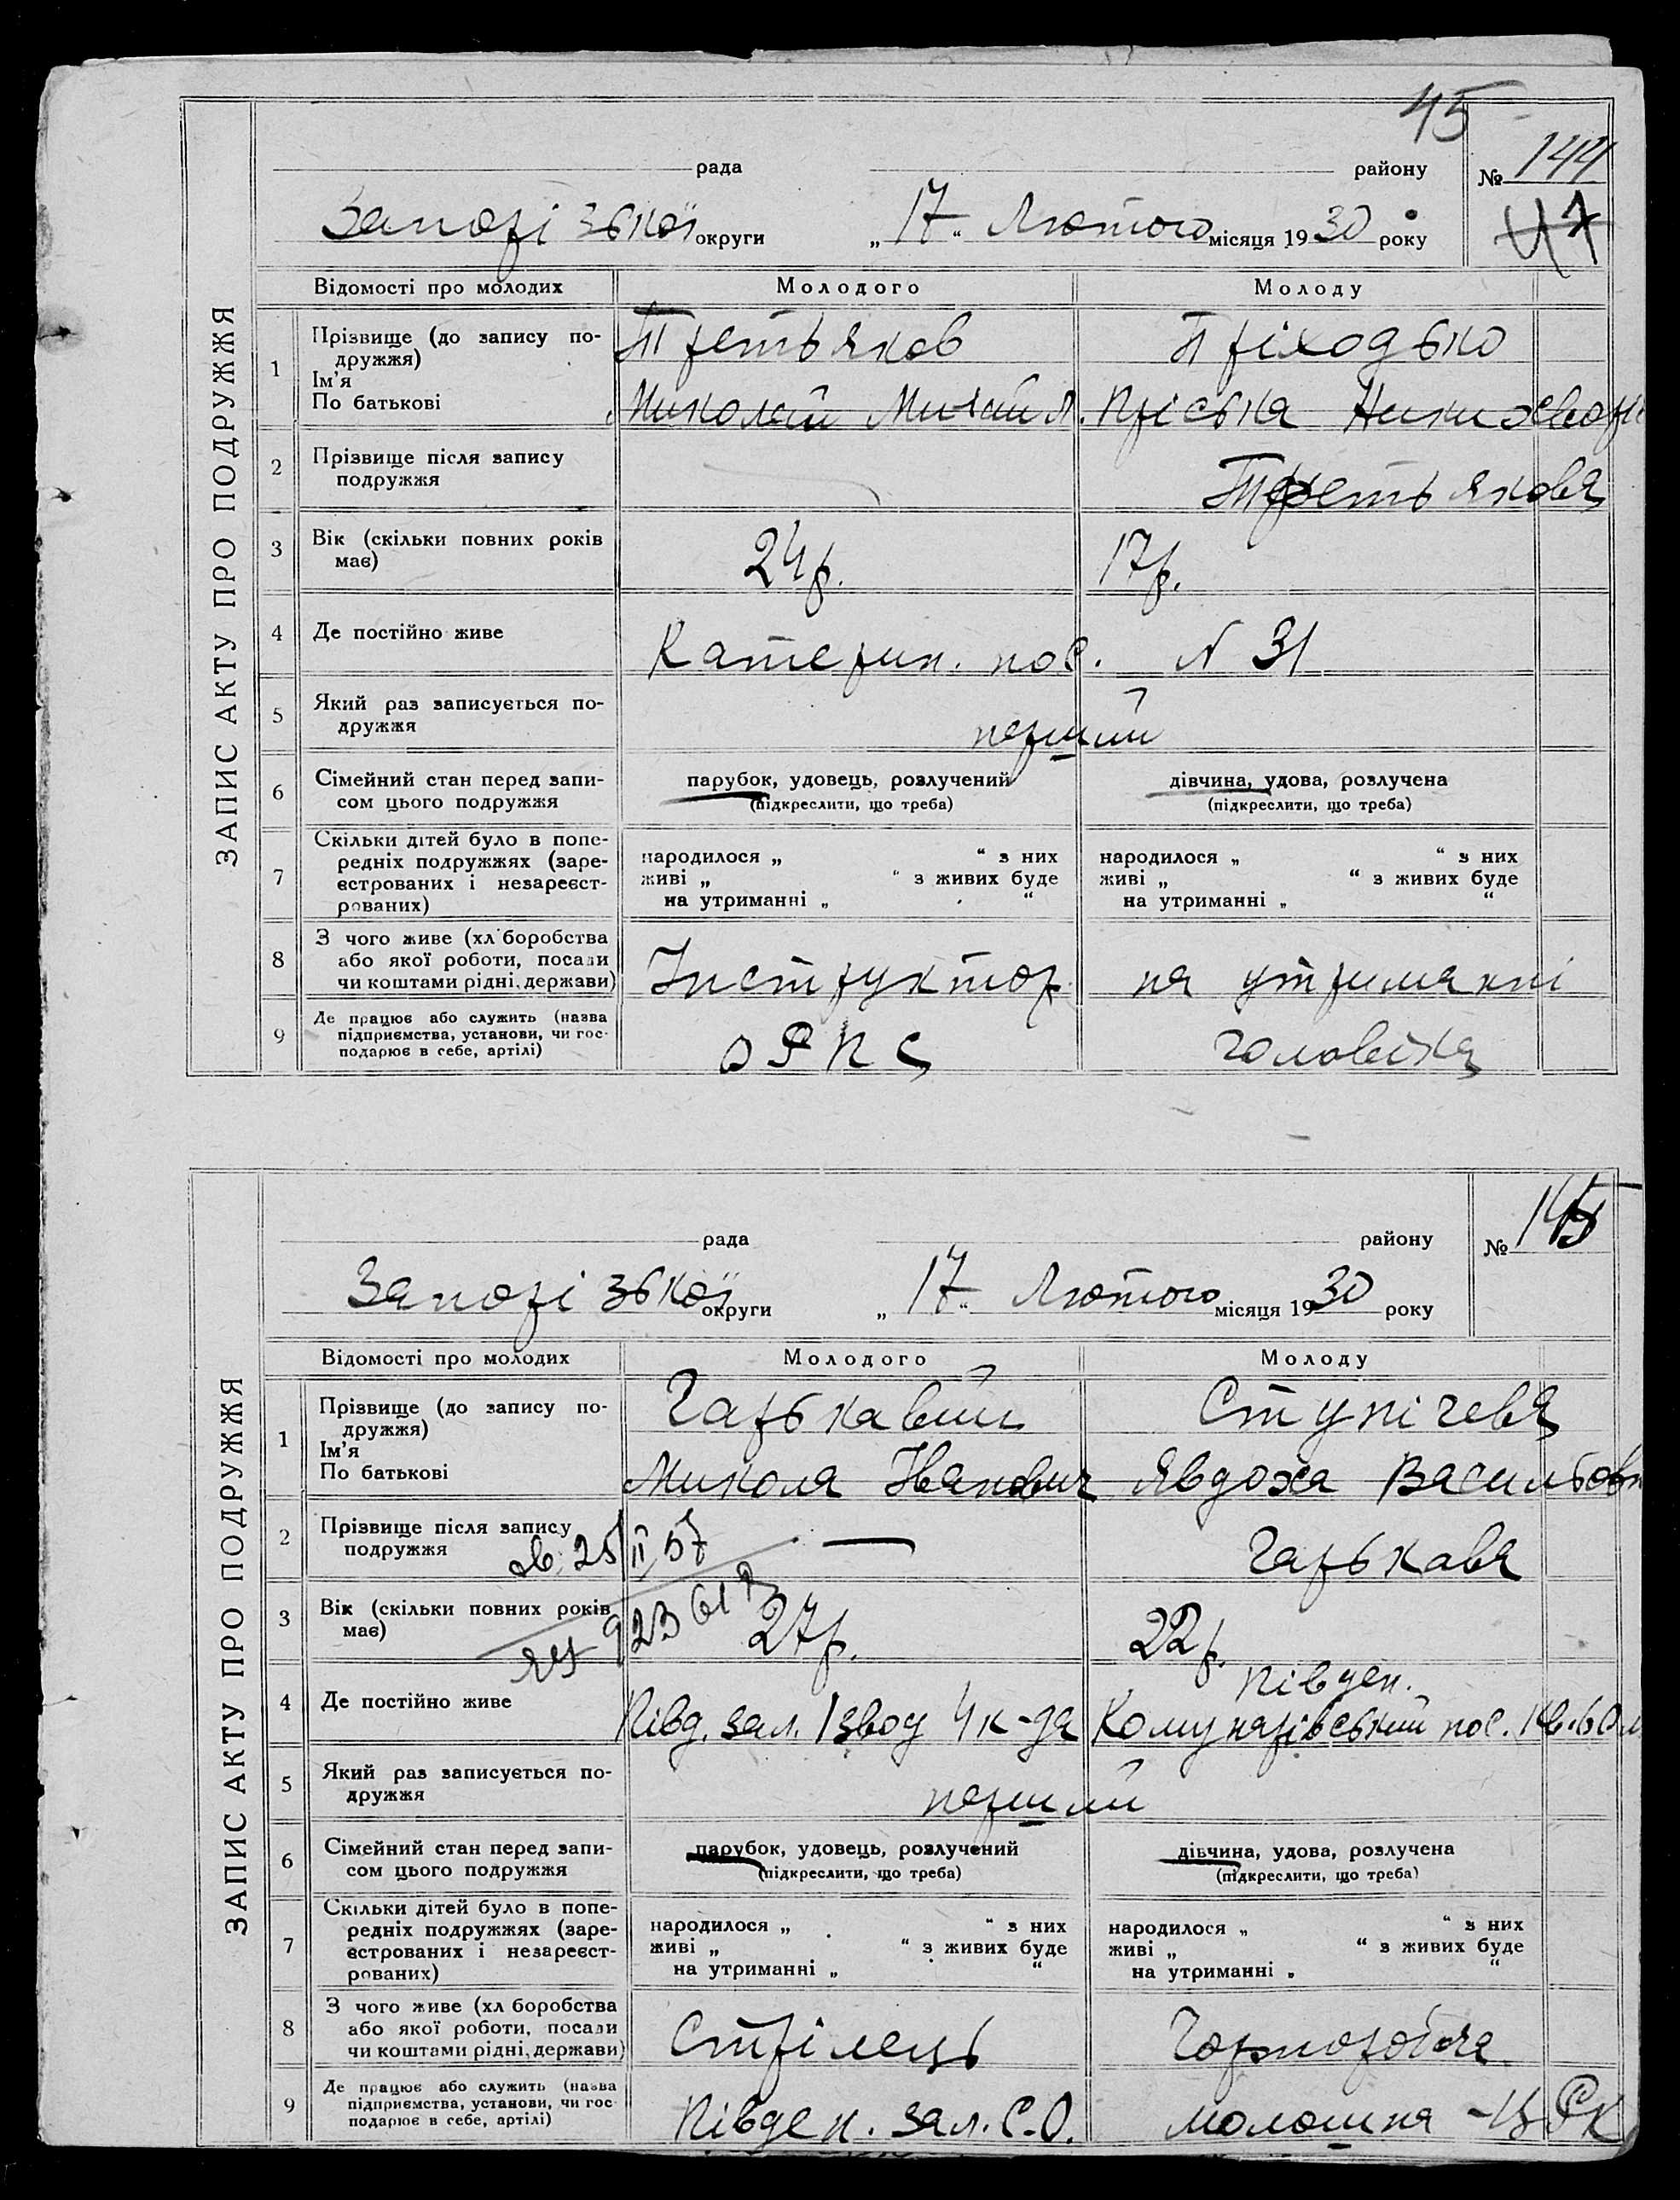 45
ЗАПИС АКТУ ПРО ПОДРУЖЖЯ
рада району № 144
Запорізької округи „17“ Лютого місяця 1930 року
47
Відомості про молодих Молодого Молоду
1 Прізвище (до запису подружжя) Третьяков Пріходько
Ім'я
По батькові Миколай Михайл. Пріська
2 Прізвище після запису подружжя Третьякова
3 Вік (скільки повних років має) 24р. 17р.
4 Де постійно живе Катерин. пос. N 31
5 Який раз записується подружжя перший
6 Сімейний стан перед записом цього подружжя парубок, удовець, розлучений дівчина, удова, розлучена
(підкреслити, що треба) (підкреслити, що треба)
7 Скільки дітей було в попередніх подружжях (зареєстрованих і незареєстрованих)
народилося „ “ з них народилося „ “ з них
живі „ “ з живих буде живі „ “ з живих буде
на утриманні „ “ на утриманні „ “
8 З чого живе (хліборобства або якої роботи, посади чи коштами рідні, держави) Інструктор на утриманні
9 Де працює або служить (назва підприємства, установи, чи господарює в себе, артілі) головіка
ЗАПИС АКТУ ПРО ПОДРУЖЖЯ
рада району № 145
Запорізької округи „17“ Лютого місяця 1930 року
Відомості про молодих Молодого Молоду
1 Прізвище (до запису подружжя) Гарькавий Ступічева
Ім'я
По батькові Микола Іванович Явдоха Васильовн
2 Прізвище після запису подружжя — Гарькава
3 Вік (скільки повних років має) 27р. 22р.
4 Де постійно живе Півд. зал. 1 звод 4 к-да Півден. Комунарівський пос.
5 Який раз записується подружжя перший
6 Сімейний стан перед записом цього подружжя парубок, удовець, розлучений дівчина, удова, розлучена
(підкреслити, що треба) (підкреслити, що треба)
7 Скільки дітей було в попередніх подружжях (зареєстрованих і незареєстрованих)
народилося „ “ з них народилося „ “ з них
живі „ “ з живих буде живі „ “ з живих буде
на утриманні „ “ на утриманні „ “
8 З чого живе (хліборобства або якої роботи, посади чи коштами рідні, держави) Стрілець Чорноробча
9 Де працює або служить (назва підприємства, установи, чи господарює в себе, артілі) Півден. зал. С.О. молошна - ЦРК